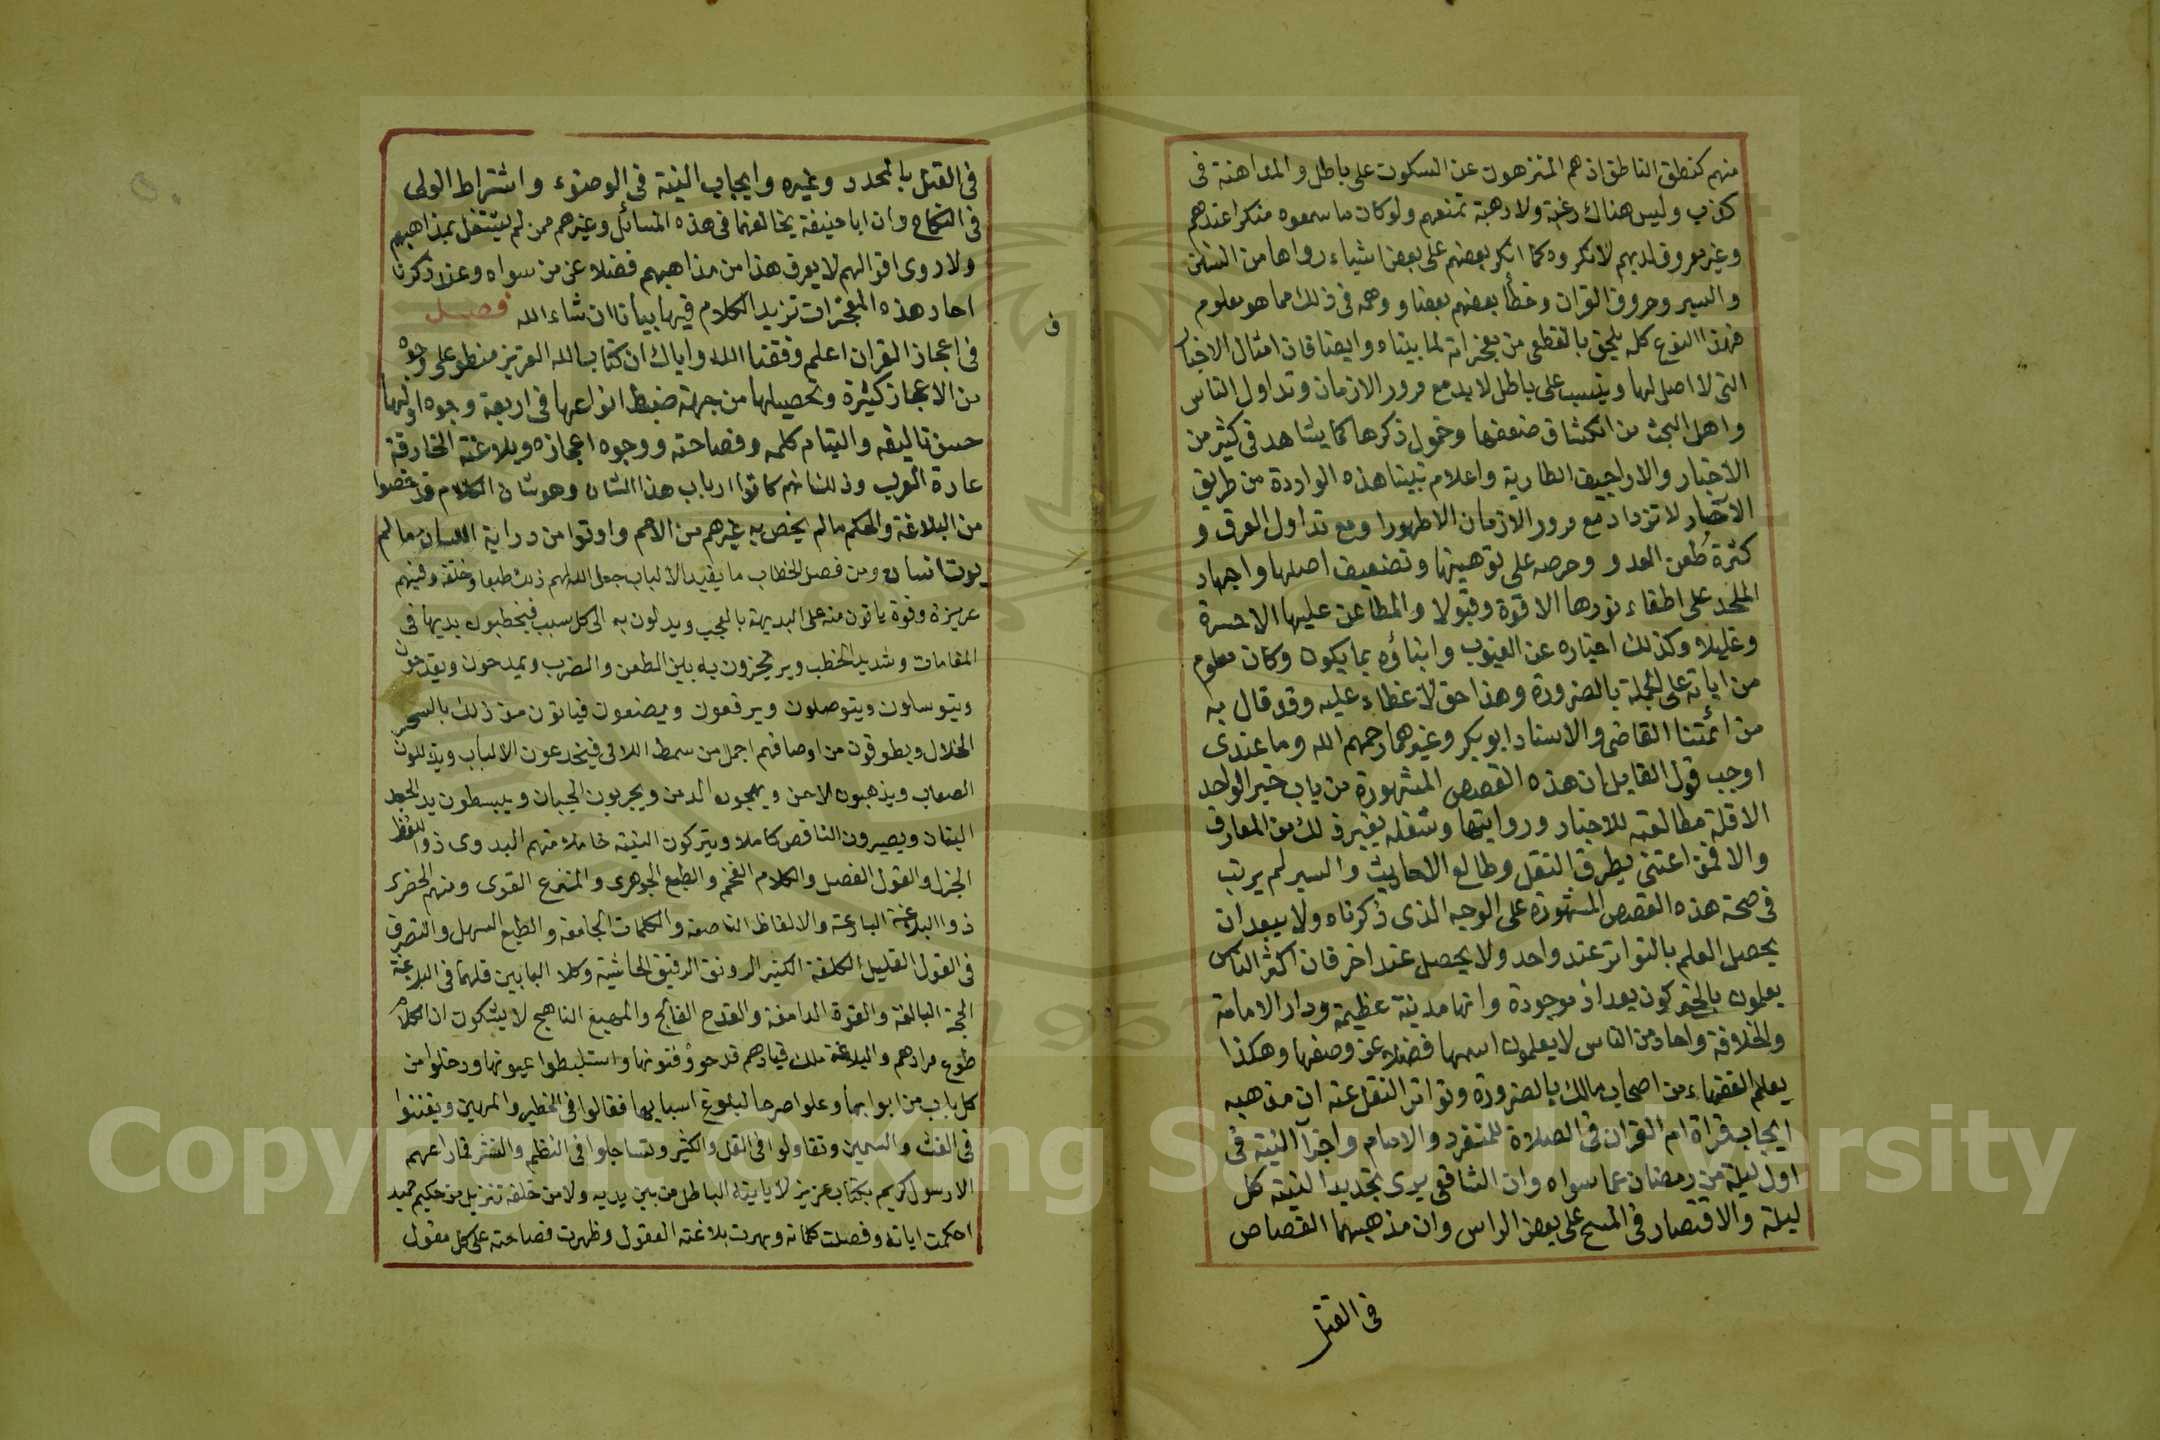 منهم كنطق الناطق اذ هم المنزهون عن السكوت على باطل والمداهنة فى
كذب وليس هناك رغبة ولا رهبة تمنعهم ولو كان ما سمعوه منكرا عندهم
وغير معروف لديهم لانكروه كما انكر بعضهم على بعض اشياء رواها من السنن
والسير وحروف القران وخطأ بعضهم بعضا ووهمه فى ذلك مما هو معلوم
فهذا النوع كله يلحق بالقطعى من معجزاته لما بيناه وايضا فان امثال الاخبار
التى لا اصل لها وبنيت على باطل لا بد مع مرور الازمان وتداول الناس
واهل البحث من انكشاف ضعفها وخمول ذكرها كما يشاهد فى كثير من
الاخبار والاراجيف الطارية واعلام نبينا هذه الواردة من طريق
الآحاد لا تزداد مع مرور الازمان الا ظهورا ومع تداول الفرق و
كثرة طعن العدو وحرصه على توهينها وتضعيف اصلها واجهاد
الملحد على اطفاء نورها الا قوة وقبولا والمطاعن عليها الا حسرة
وغليلا وكذلك اخباره عن الغيوب وانباؤه بما يكون وكان معلوم
من اياته على الجملة بالضرورة وهذا حق لا غطاء عليه وقد قال به
من ائمتنا القاضى والاستاد ابو بكر وغيرهما رحمهم الله وما عندى
اوجب قول القايل ان هذه القصص المشهورة من باب خبر الواحد
الا قلة مطالعته للاخبار وروايتها وشغله بغير ذلك من المعارف
والا فمن اعتنى بطرق النقل وطالع الاحاديث والسير لم يرتب
فى صحة هذه القصص المشهورة على الوجه الذى ذكرناه ولا يبعد ان
يحصل العلم بالتواتر عند واحد ولا يحصل عند اخر فان اكثر الناس
يعلمون بالخبر كون بغداد موجودة وانها مدينة عظيمة ودار الامامة
والخلافة واحاد من الناس لا يعلمون اسمها فضلا عن وصفها وهكذا
يعلم الفقهاء من اصحاب مالك بالضرورة وتواتر النقل عنه ان مذهبه
ايجاب قراة ام القران فى الصلاة للمنفرد والامام واجزا النية فى
اول ليلة من رمضان عما سواه وان الشافعى يرى تجديد النية كل
ليلة والاقتصار فى المسح على بعض الراس وان مذهبهما القصاص
فى القتل
فى القتل بالمحدد وغيره وايجاب النية فى الوضوء واشتراط الولى
فى النكاح وان ابا حنيفة يخالفهما فى هذه المسائل وغيرهم ممن لم يشتغل بمذاهبهم
ولا روى اقوالهم لا يعرف هذا من مذاهبهم فضلا عن من سواه وعند ذكرنا
احاد هذه المعجزات نزيد الكلام فيها بيانا ان شاء الله فصل
ف
فى اعجاز القران اعلم وفقنا الله واياك ان كتاب الله العزيز منطو على وجوه
من الاعجاز كثيرة وتحصيلها من جهة ضبط انواعها فى اربعة وجوه اولها
حسن تاليفه والتيام كلمه وفصاحته ووجوه اعجازه وبلاغته الخارقة
عادة العرب وذلك انهم كانوا ارباب هذا الشان وهو شان الكلام قد خصوا
من البلاغة والحكم ما لم يخص به غيرهم من الامم واوتوا من دراية اللسان ما لم
يوت انسان ومن فصل الخطاب ما يقيد الالباب جعل الله لهم ذلك طبعا وخلقة وفيهم
غريزة وقوة ياتون منه على البديهة بالعجب ويدلون به الى كل سبب فيخطبون بديها فى
المقامات وشديد الخطب ويرتجزون به بين الطعن والضرب ويمدحون ويقدحون
ويتوسلون ويتوصلون ويرفعون ويضعون فياتون من ذلك بالسحر
الحلال ويطوقون من اوصافهم اجمل من سمط اللالى فيخدعون الالباب ويذللون
الصعاب ويذهبون الاحن ويهيجون الدمن ويجربون الجبان ويبسطون يد الجعد
البنان ويصيرون الناقص كاملا ويتركون النبيه خاملا منهم البدوى ذو اللفظ
الجزل والقول الفصل والكلام الفخم والطبع الجوهرى والمنزع القوى ومنهم الحضرى
ذو البلاغة البارعة والالفاظ الناصعة والكلمات الجامعة والطبع السهل والتصرف
فى القول القليل الكلفة الكثير الرونق الرقيق الحاشية وكلا البابين فلهما فى البلاغة
الحجة البالغة والقوة الدامغة والقدح الفالج والمهيع الناهج لا يشكون ان الكلام
طوع مرادهم والبلاغة ملك قيادهم قد حووا فنونها واستنبطوا عيونها ودخلوا من
كل باب من ابوابها وعلوا صرحا لبلوغ اسبابها فقالوا فى الخطير والمهين وتفننوا
فى الغث والسمين وتقاولوا فى القل والكثر وتساجلوا فى النظم والنثر فما راعهم
الا رسول كريم بكتاب عزيز لا ياتيه الباطل من بين يديه ولا من خلفه تنزيل من حكيم حميد
احكمت اياته وفصلت كلماته وبهرت بلاغته العقول وظهرت فصاحته على كل مقول
Copyright © King Saud University
1957